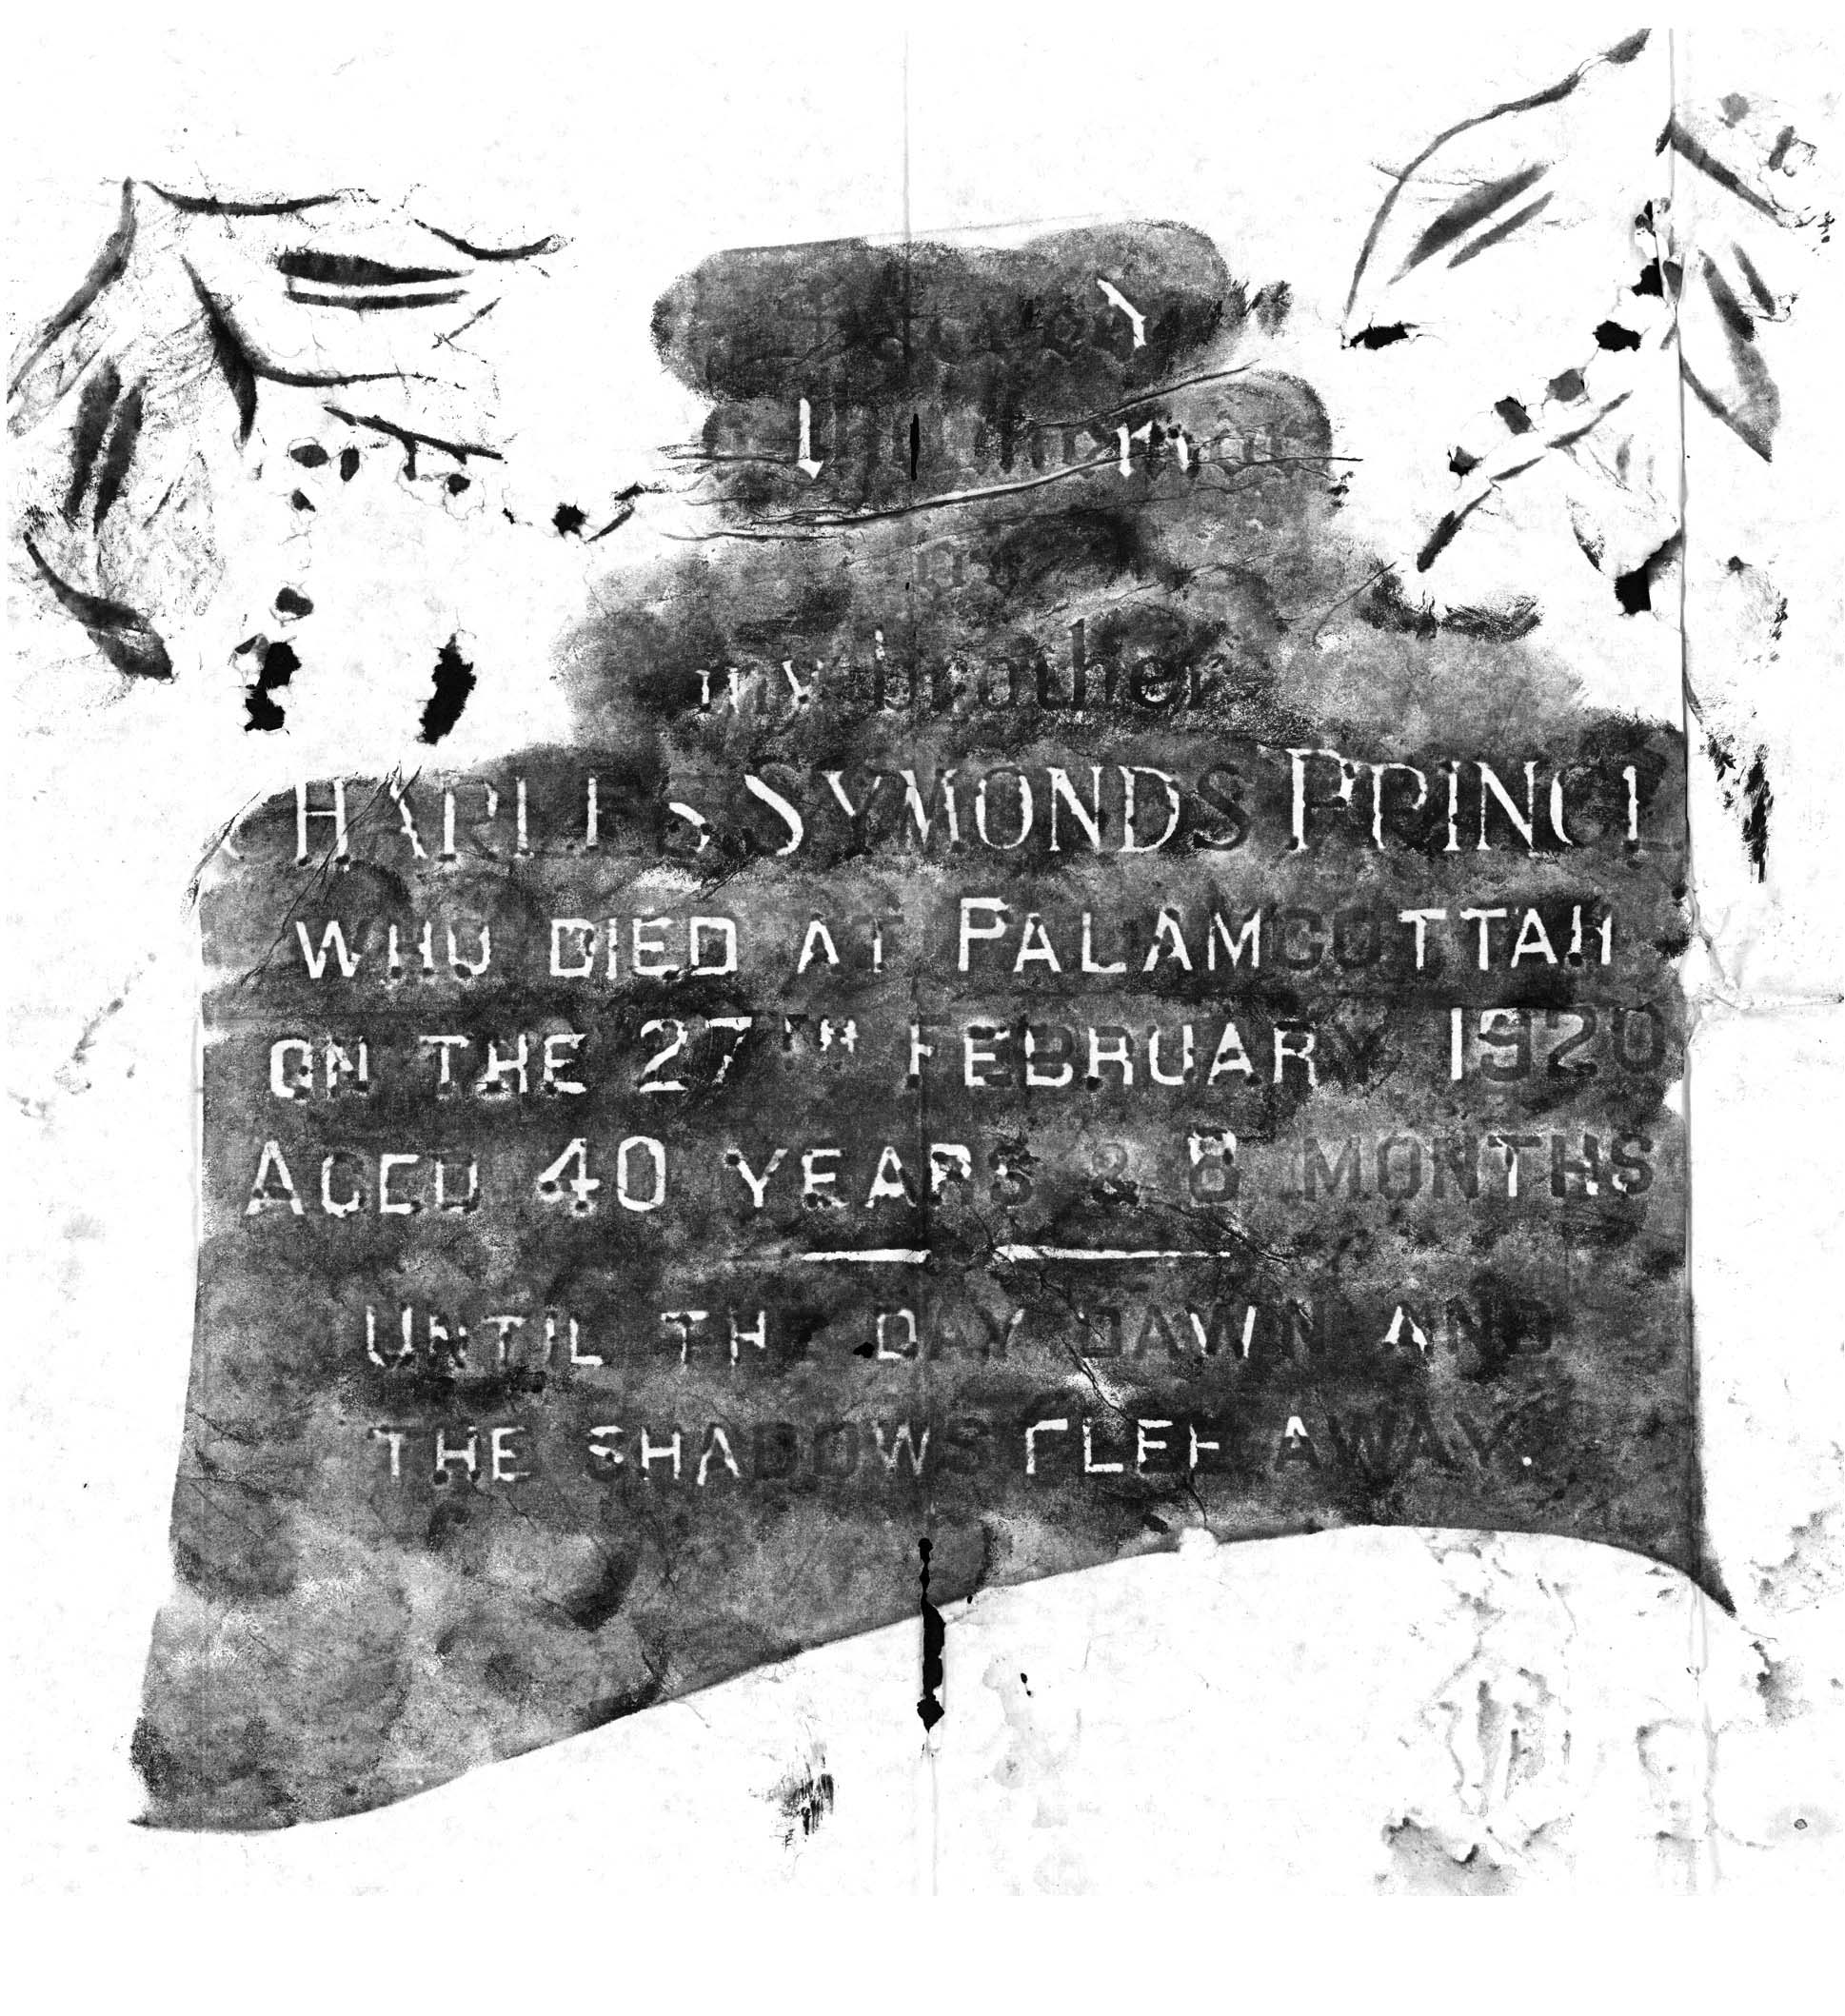 Sacred
my brother
CHARLES SYMONDS PRINCE
WHO DIED AT PALAMCOTTAH
ON THE 27TH FEBRUARY 1920
AGED 40 YEARS & 8 MONTHS
UNTIL THE DAY DAWN AND
THE SHADOWS FLEE AWAY.